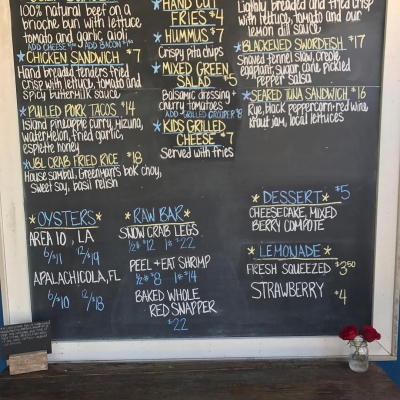 100% natural beef on a
brioche bun with lettuce
tomato and garlic aioli
ADD CHEESE $1 ADD BACON
CHICKEN SANDWICH $7
Hand breaded tenders fried
crisp with lettuce, tomato and
spicy buttermilk sauce
PULLED PORK TACOS $14
Island pineapple curry, mizuna,
watermelon, fried garlic,
espelette honey
JBL CRAB FRIED RICE $18
House sambal, Greenman's bok choy,
sweet soy, basil relish
HAND CUT
FRIES $4
HUMMUS $7
Crispy pita chips
MIXED GREEN
SALAD $5
Balsamic dressing +
cherry tomatoes
ADD GRILLED GROUPER $8
KIDS GRILLED
CHEESE $7
Served with fries
Lightly breaded and fried crisp
with lettuce, tomato and our
lemon dill sauce
BLACKENED SWORDFISH $17
Shaved fennel slaw, creole
eggplant, sugar cane pickled
salsa
SEARED TUNA SANDWICH $16
Rye, black peppercorn-red wine
kraut jam, local lettuces
OYSTERS
AREA 10, LA
6/$11 12/$14
APALACHICOLA, FL
6/$10 12/$18
RAW BAR
SNOW CRAB LEGS
1/2# $12 1# $22
PEEL + EAT SHRIMP
1/2# $8 1# $14
BAKED WHOLE
RED SNAPPER
$22
DESSERT $5
CHEESECAKE, MIXED
BERRY COMPOTE
LEMONADE
FRESH SQUEEZED $3.50
STRAWBERRY $4